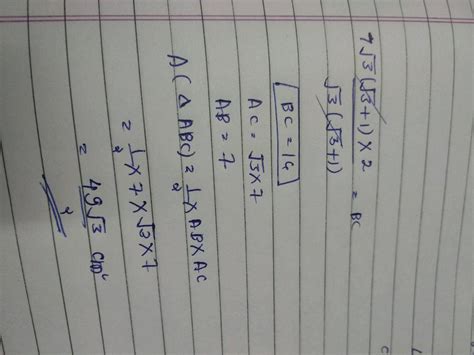 7√3(√3+1)×2 / √3(√3+1) = BC
BC = 14
AC = √3×7
AB = 7
A(△ABC) = 1/2 × AB × AC
= 1/2 × 7 × √3 × 7
= 49√3 / 2 cm²